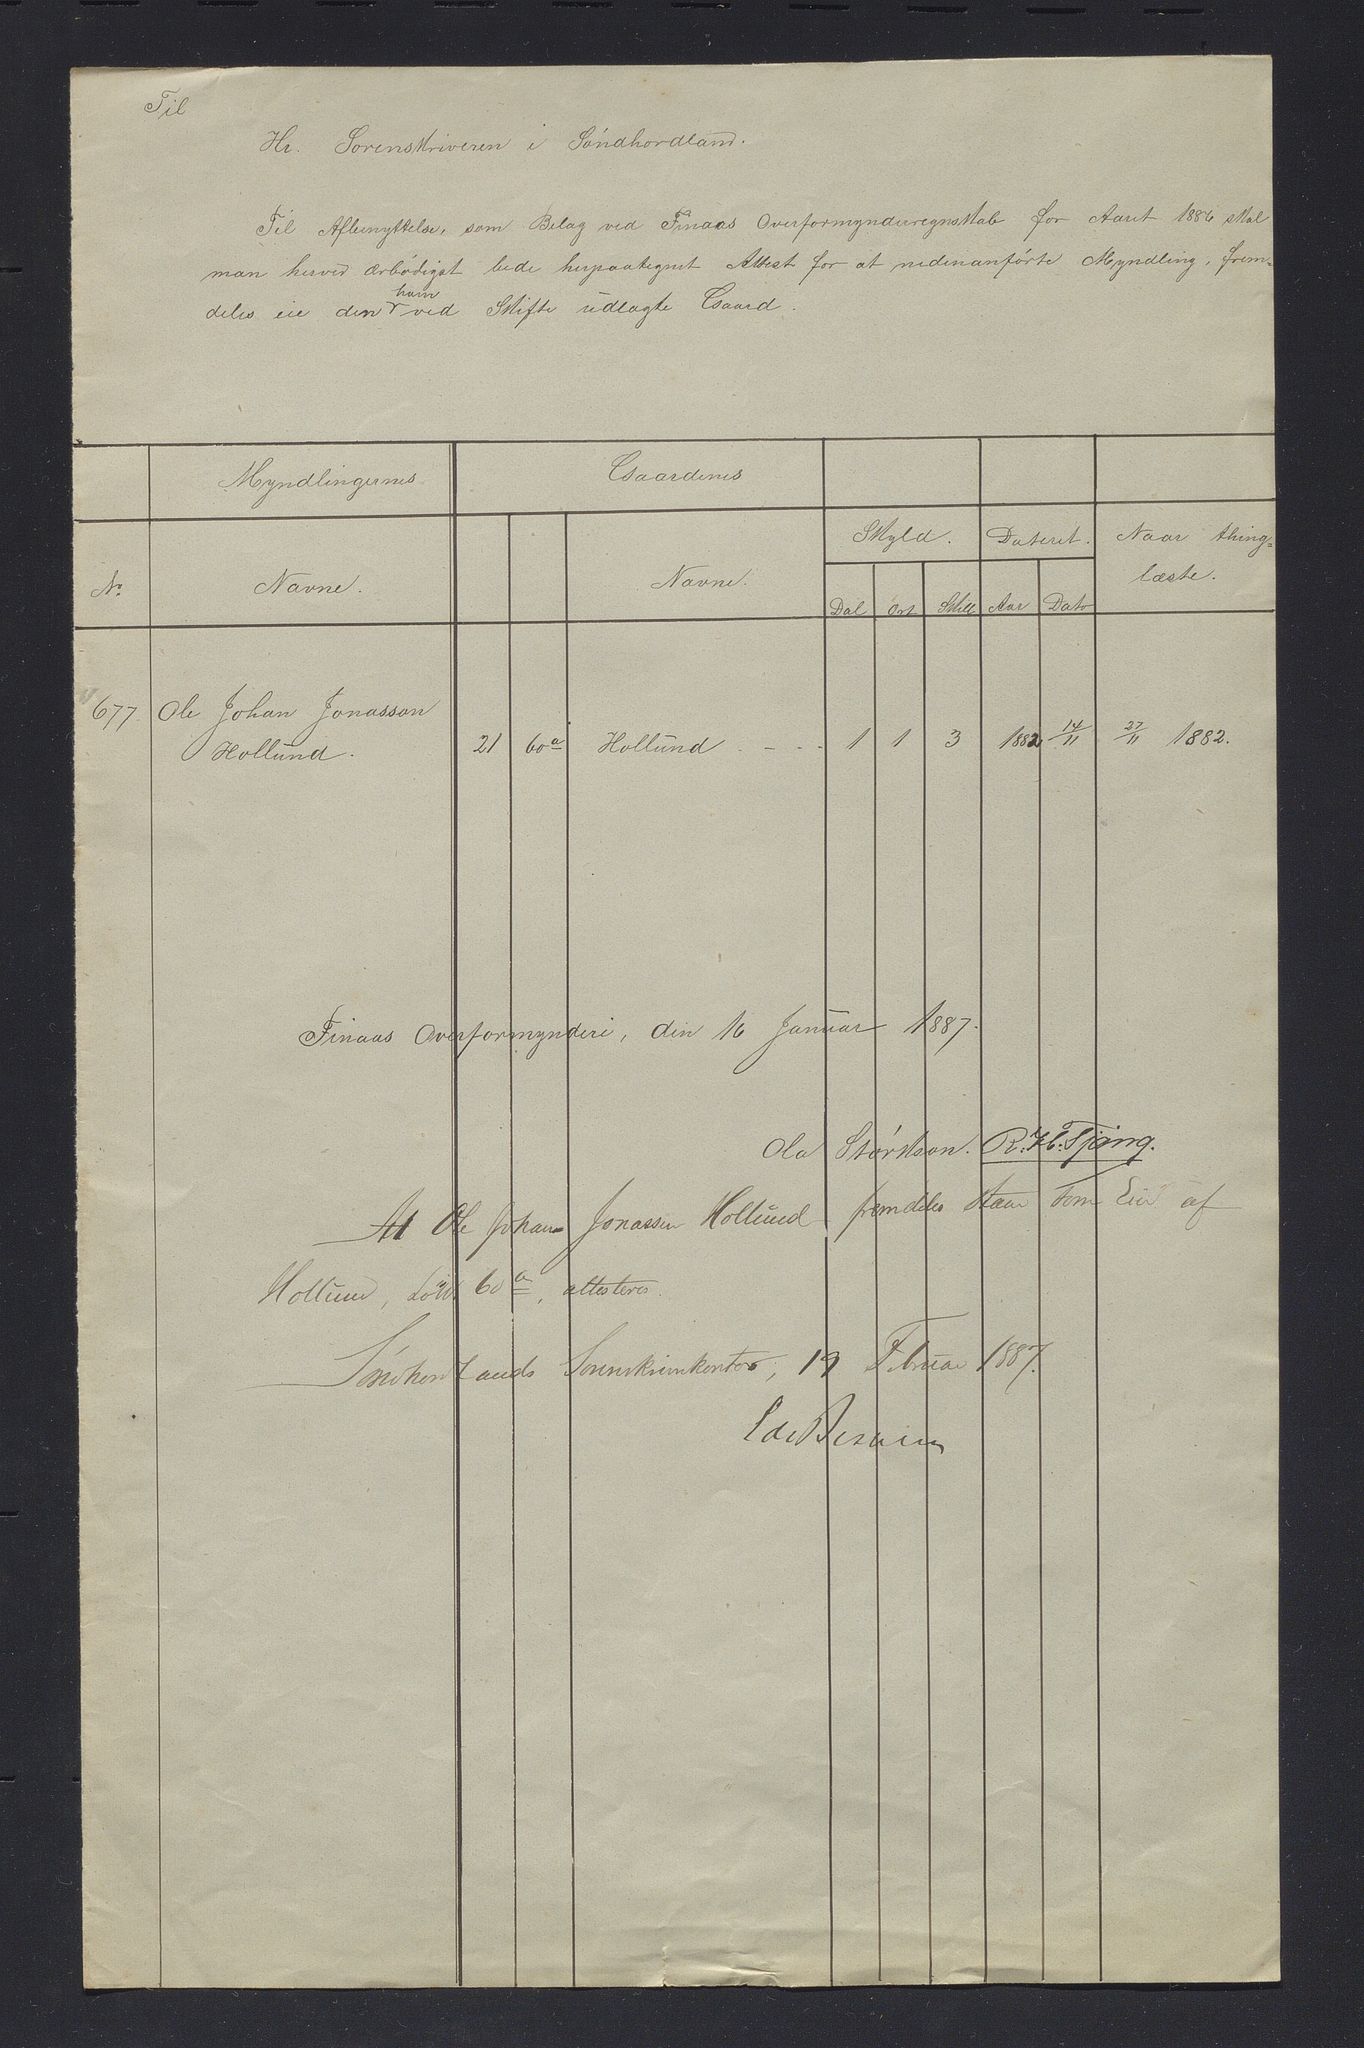 Til
Hr. Sorenskriveren i Söndhordland.
Til Afbenyttelse, som Bilag ved Finaas Overformynderregnskab for Aaret 1886 skal
man herved ærbödigst bede herpaategnet Attest for at nedenanförte Myndling, frem-
deles eie den ham ved Skifte udlagte Gaard.
Myndlingernes Gaardenes
Skyld. Dateret. Naar thing-
No. Navne. Navne. læste.
Dal Ort Skill Aar Dato
677. Ole Johan Jonasson
Hollund. 21 60a Hollund - - - 1 1 3 1882 14/11 27/11 1882.
Finaas Overformynderi, den 16 Januar 1887.
Ola Störkson. R. H. Tjöng.
At Ole Johan Jonassen Hollund fremdeles staar som Eier af
Hollund, Löbn 60a, attesteres.
Söndhordlands Sorenskriverkontor, 19 Februar 1887.